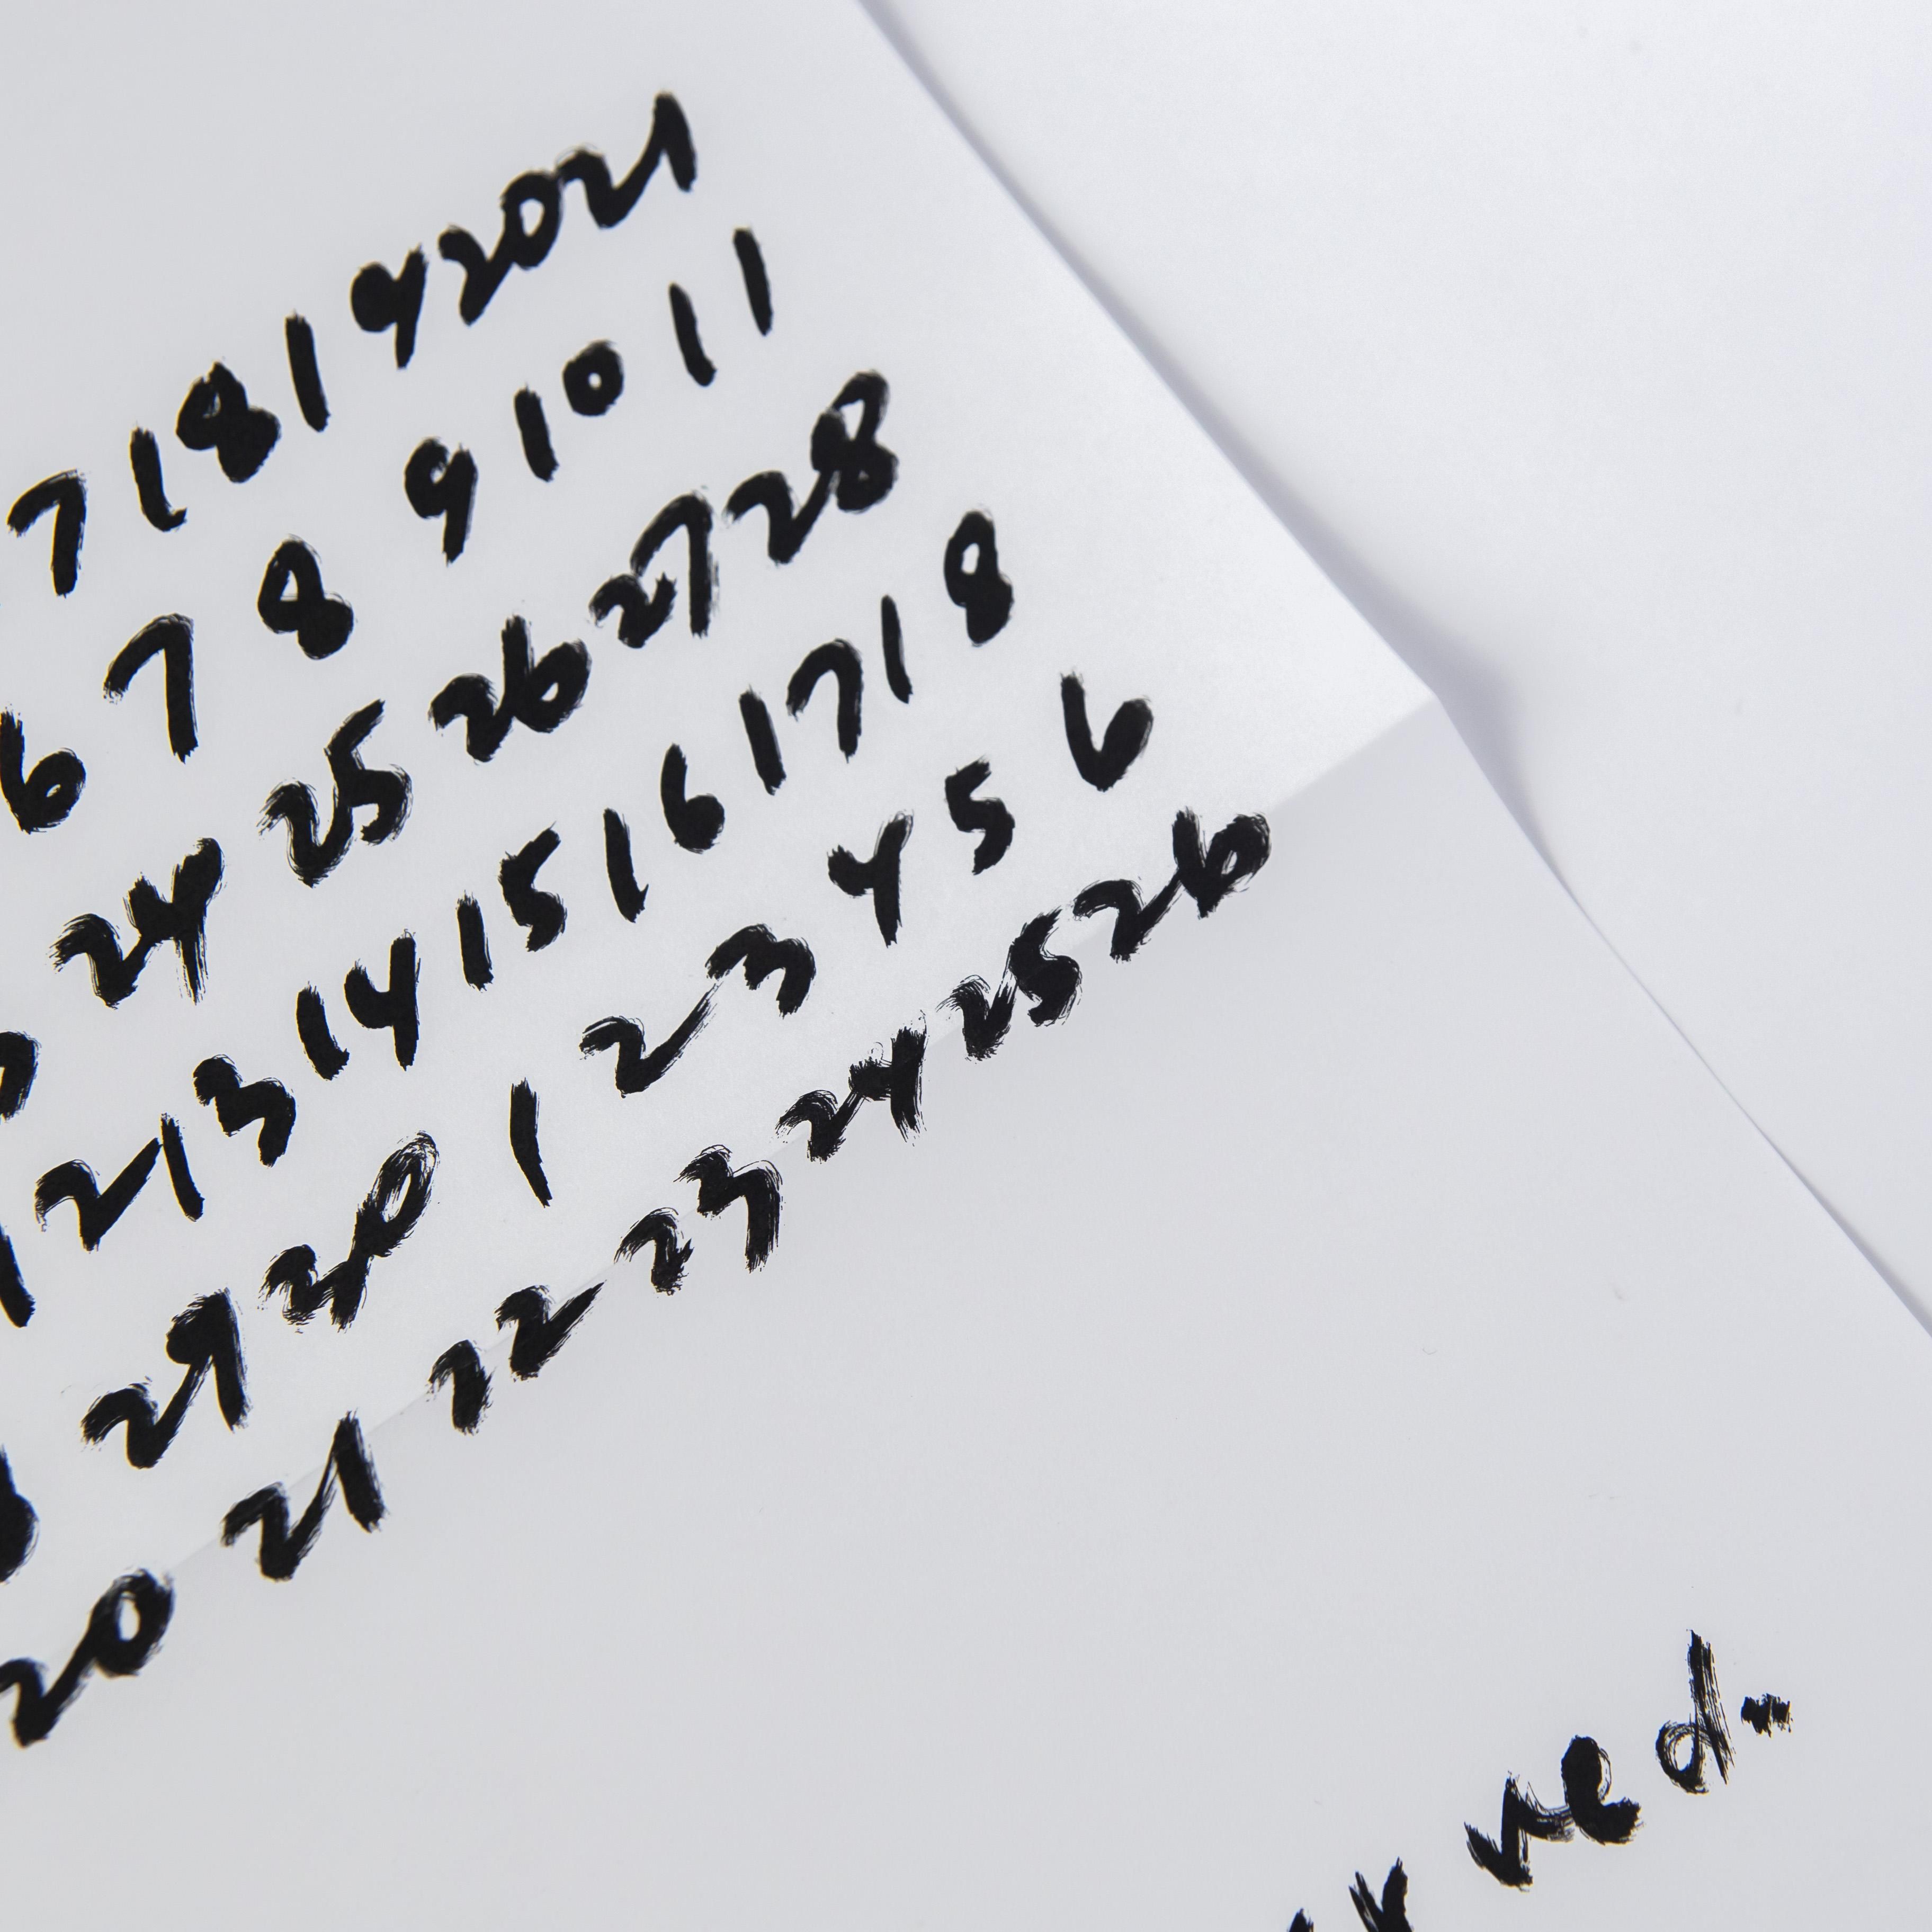 7 18 19 20 21
6 7 8 9 10 11
24 25 26 27 28
12 13 14 15 16 17 18
29 30 1 2 3 4 5 6
20 21 22 23 24 25 26
rved.